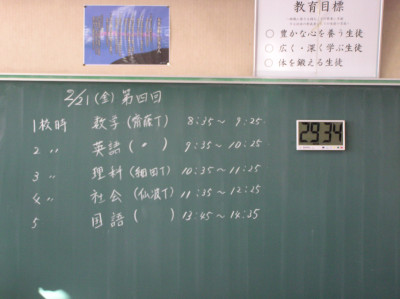 教育目標
○ 豊かな心を養う生徒
○ 広く・深く学ぶ生徒
○ 体を鍛える生徒
2/21(金) 第四回
1校時 数学(齋藤T) 8:35～9:25
2 〃 英語( 〃 ) 9:35～10:25
3 〃 理科(細田T) 10:35～11:25
4 〃 社会(仏浪T) 11:35～12:25
5 国語( ) 13:45～14:35
29 34